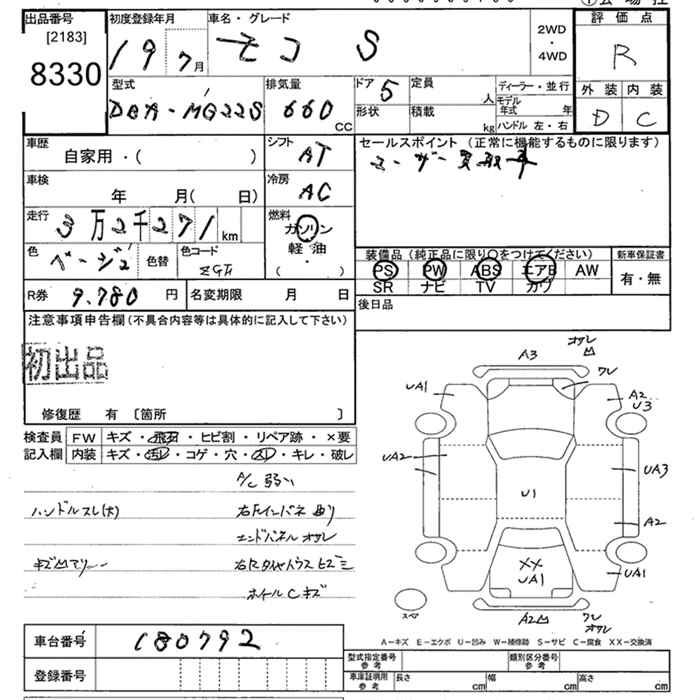 出品番号
[2183]
8330
初度登録年月
19 7月
車名・グレード
モコ S
2WD
・
4WD
評価点
R
外装 内装
D C
型式
DBA-MG22S
排気量
660 cc
ドア 5
定員 人
形状
積載 kg
ディーラー・並行
モデル年式 年
ハンドル 左・右
車歴
自家用・( )
シフト
AT
セールスポイント (正常に機能するものに限ります)
ユーザー買取車
車検
年 月( 日)
冷房
AC
走行
3万2千271km
燃料
ガソリン
軽油
・
( )
色
ベージュ
色替
色コード
ZGH
装備品 (純正品に限り○をつけてください)
新車保証書
PS PW ABS エアB AW
SR ナビ TV カワ
有・無
R券 9.780 円
名変期限 月 日
後日品
注意事項申告欄 (不具合内容等は具体的に記入して下さい)
初出品
修復歴 有 〔箇所 〕
検査員
記入欄
FW キズ・飛石・ヒビ割・リペア跡・×要
内装 キズ・汚レ・コゲ・穴・スレ・キレ・破レ
A/C 弱い
ハンドルスレ(大)
右Fインパネ曲り
エンドパネル オサレ
キズ凹アリ
右Rタイヤハウスヒズミ
ホイールCキズ
A3
オサレ
凹
クレ
UA1
A2
U3
UA2
UA3
U1
A2
XX
UA1
UA1
スペア
A2凹
クレ
オサレ
A－キズ E－エクボ U－凹み W－補修跡 S－サビ C－腐食 XX－交換済
車台番号 180792
登録番号
型式指定番号
参考
類別区分番号
参考
車庫証明用
参考
長さ cm
幅 cm
高さ cm